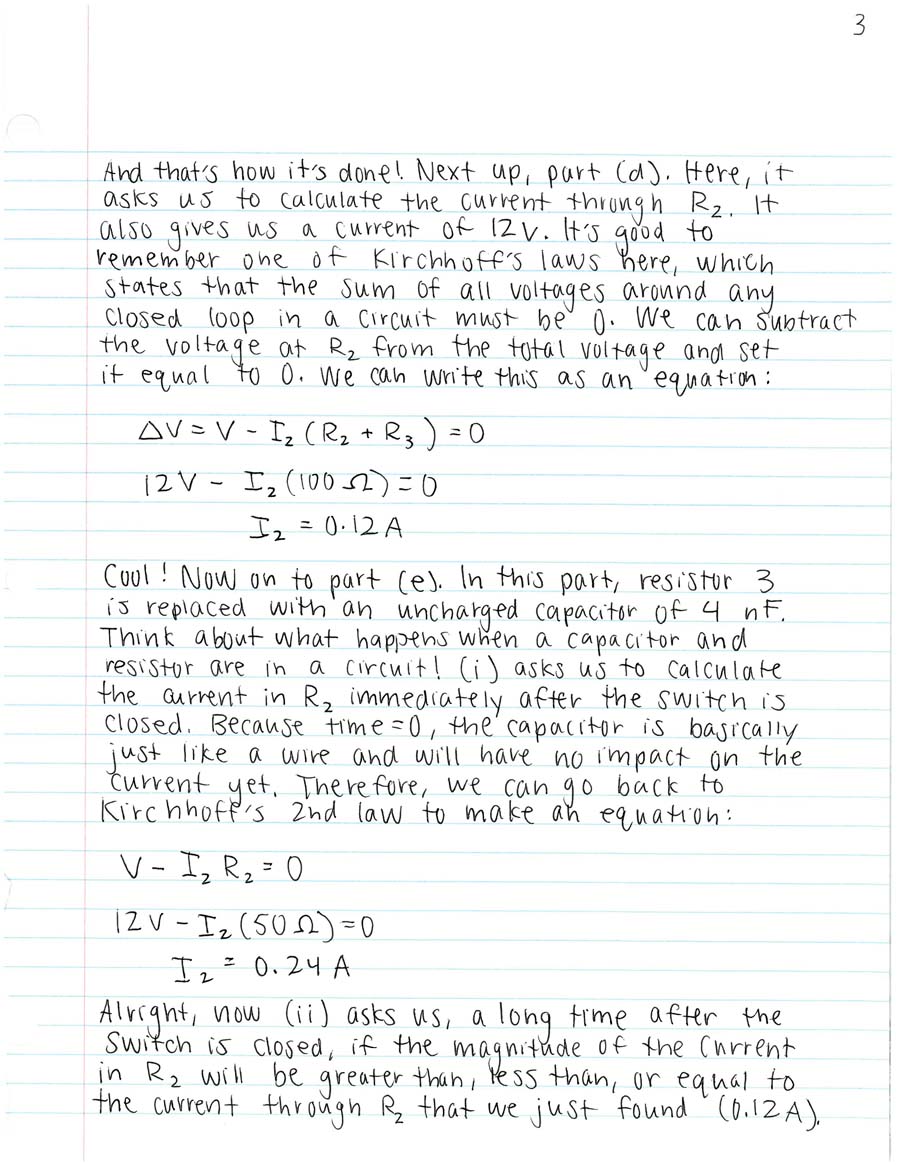 3
And that's how it's done! Next up, part (d). Here, it
asks us to calculate the current through R₂. It
also gives us a current of 12V. It's good to
remember one of Kirchhoff's laws here, which
states that the sum of all voltages around any
closed loop in a circuit must be 0. We can subtract
the voltage at R₂ from the total voltage and set
it equal to 0. We can write this as an equation:
ΔV = V - I₂ (R₂ + R₃) = 0
12V - I₂ (100 Ω) = 0
I₂ = 0.12 A
Cool! Now on to part (e). In this part, resistor 3
is replaced with an uncharged capacitor of 4 nF.
Think about what happens when a capacitor and
resistor are in a circuit! (i) asks us to calculate
the current in R₂ immediately after the switch is
closed. Because time=0, the capacitor is basically
just like a wire and will have no impact on the
current yet. Therefore, we can go back to
Kirchhoff's 2nd law to make an equation:
V - I₂ R₂ = 0
12V - I₂ (50 Ω) = 0
I₂ = 0.24 A
Alright, now (ii) asks us, a long time after the
switch is closed, if the magnitude of the current
in R₂ will be greater than, less than, or equal to
the current through R₂ that we just found (0.12A).